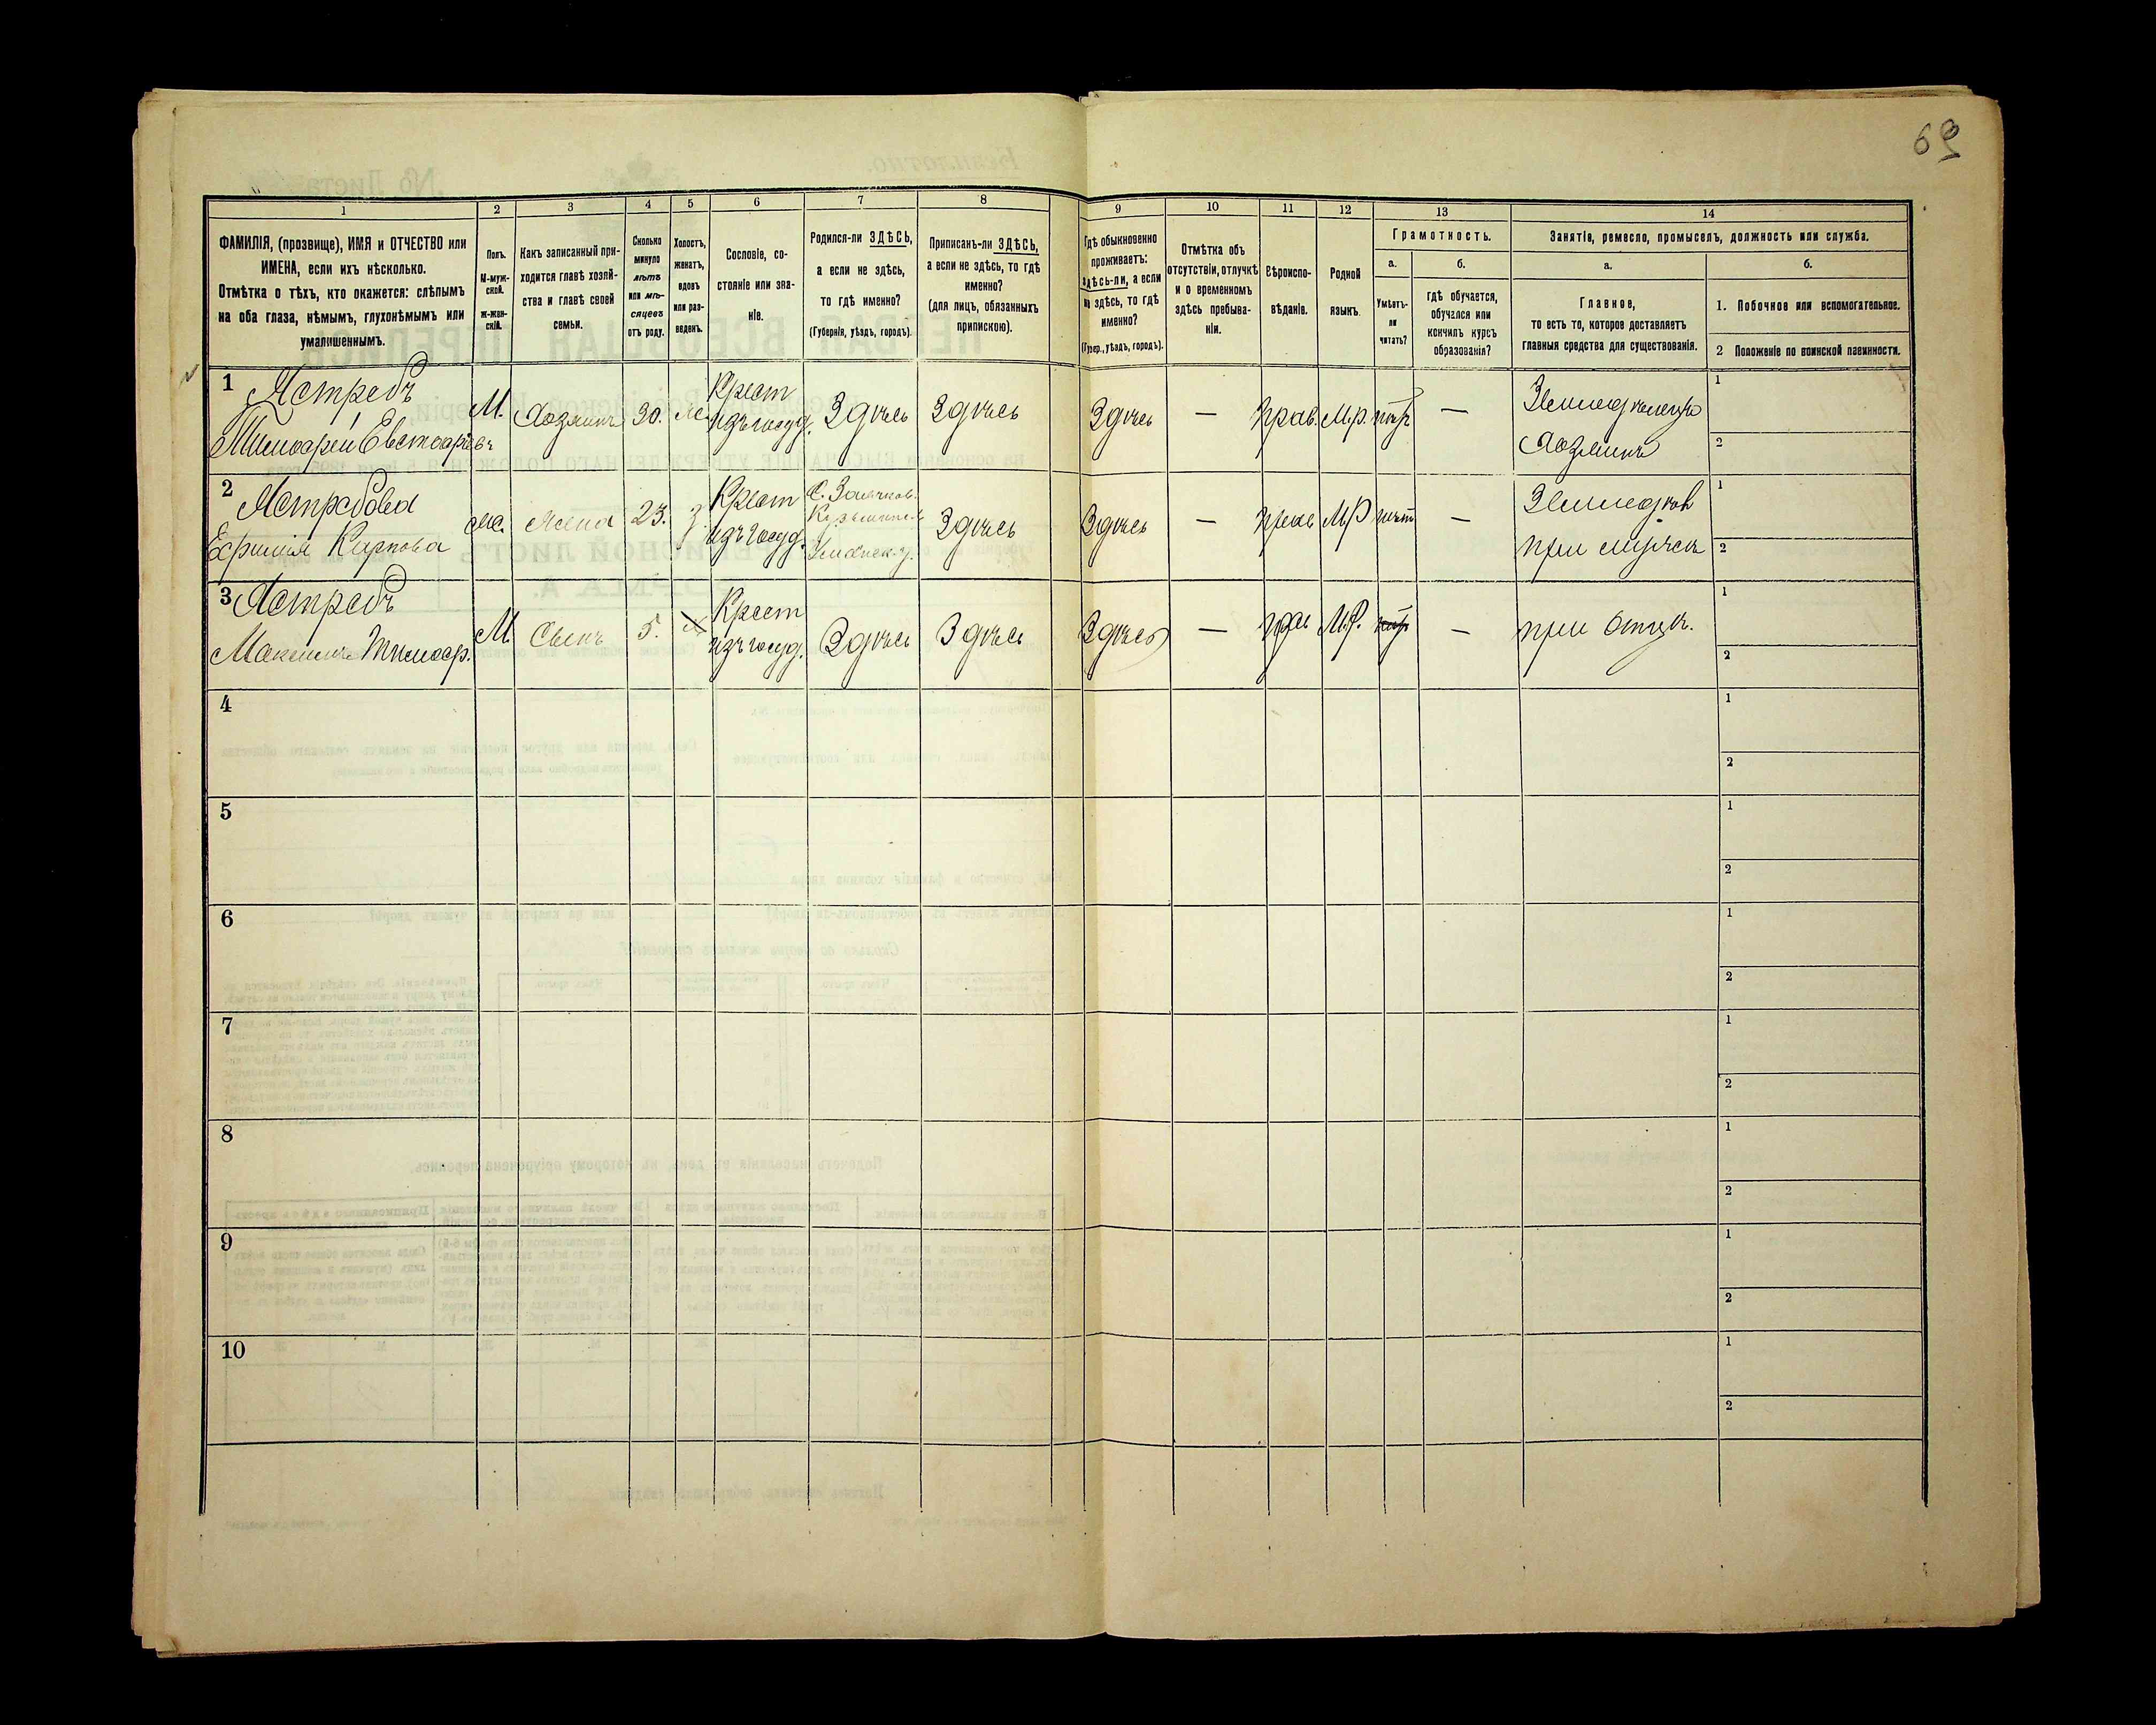 69
1 2 3 4 5 6 7 8 9 10 11 12 13 14
ФАМИЛІЯ, (прозвище), ИМЯ и ОТЧЕСТВО или
ИМЕНА, если ихъ нѣсколько.
Отмѣтка о тѣхъ, кто окажется: слѣпымъ
на оба глаза, нѣмымъ, глухонѣмымъ или
умалишеннымъ.
Полъ.
М-муж-
ской.
ж-жен-
скій.
Какъ записанный при-
ходится главѣ хозяй-
ства и главѣ своей
семьи.
Сколько
минуло
лѣтъ
или мѣ-
сяцевъ
отъ роду.
Холостъ,
женатъ,
вдовъ
или раз-
веденъ.
Сословіе, со-
стояніе или зва-
ніе.
Родился-ли ЗДѢСЬ,
а если не здѣсь,
то гдѣ именно?
(Губернія, уѣздъ, городъ).
Приписанъ-ли ЗДѢСЬ,
а если не здѣсь, то гдѣ
именно?
(для лицъ, обязанныхъ
припискою).
Гдѣ обыкновенно
проживаетъ:
здѣсь-ли, а если
не здѣсь, то гдѣ
именно?
(Губер., уѣздъ, городъ).
Отмѣтка объ
отсутствіи, отлучкѣ
и о временномъ
здѣсь пребыва-
ніи.
Вѣроиспо-
вѣданіе.
Родной
языкъ.
Грамотность.
а.
Умѣетъ-
ли
читать?
б.
гдѣ обучается,
обучался или
кончилъ курсъ
образованія?
Занятіе, ремесло, промыселъ, должность или служба.
а.
Главное,
то есть то, которое доставляетъ
главныя средства для существованія.
б.
1. Побочное или вспомогательное.
2 Положеніе по воинской повинности.
1 Ястребъ
Тимофей Евстафіевъ
М. Хозяинъ 30. ж
Крест
изъ госуд.
Здѣсь Здѣсь Здѣсь — прав. М.р. нѣтъ —
Земледѣлецъ
Хозяинъ
1
2
2 Ястребова
Ефимія Карпова
ж. жена 23. з
Крест
изъ госуд.
Уманск. у.
Здѣсь Здѣсь — прав М.Р нѣт —
Земледѣл
при мужѣ
1
2
3 Ястребъ
Максимъ Тимоф.
М. Сынъ 5.
Крест
изъ госуд.
Здѣсь Здѣсь Здѣсь — прав М.Р. —
при отцѣ.
1
2
4
1
2
5
1
2
6
1
2
7
1
2
8
1
2
9
1
2
10
1
2